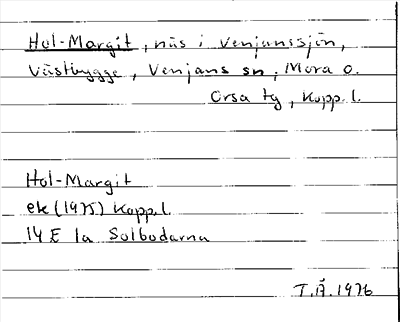 Hol-Margit, näs i Venjanssjön,
Västbygge, Venjans sn, Mora o.
Orsa tg, Kopp. l.
Hol-Margit
ek (1975) Kopp. l.
14 E 1a Solbodarna
T.Å. 1976